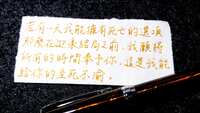 若有一天我能擁有死亡的選項
那麼在迎來結局之前，我願將
所有的時間奉予你，這是我能
給你的至死不渝。